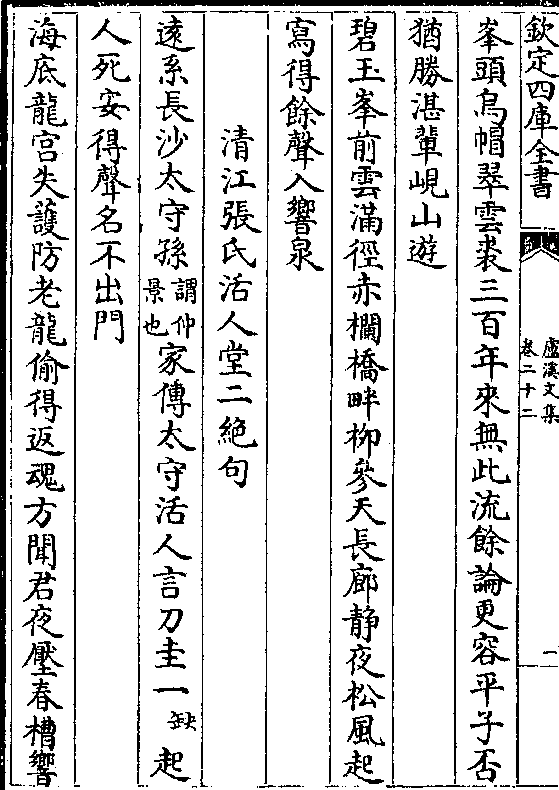 欽定四庫全書
盧溪文集
卷二十二
一
峯頭烏帽翠雲裘三百年來無此流餘論更容平子否
猶勝湛輩峴山遊
碧玉峯前雲滿徑赤欄橋畔栁參天長廊静夜松風起
寫得餘聲入響泉
清江張氏活人堂二絶句
逺系長沙太守孫謂仲景也家傳太守活人言刀圭一缺起
人死安得聲名不出門
海底龍宫失䕶防老龍偷得返魂方聞君夜壓春槽響